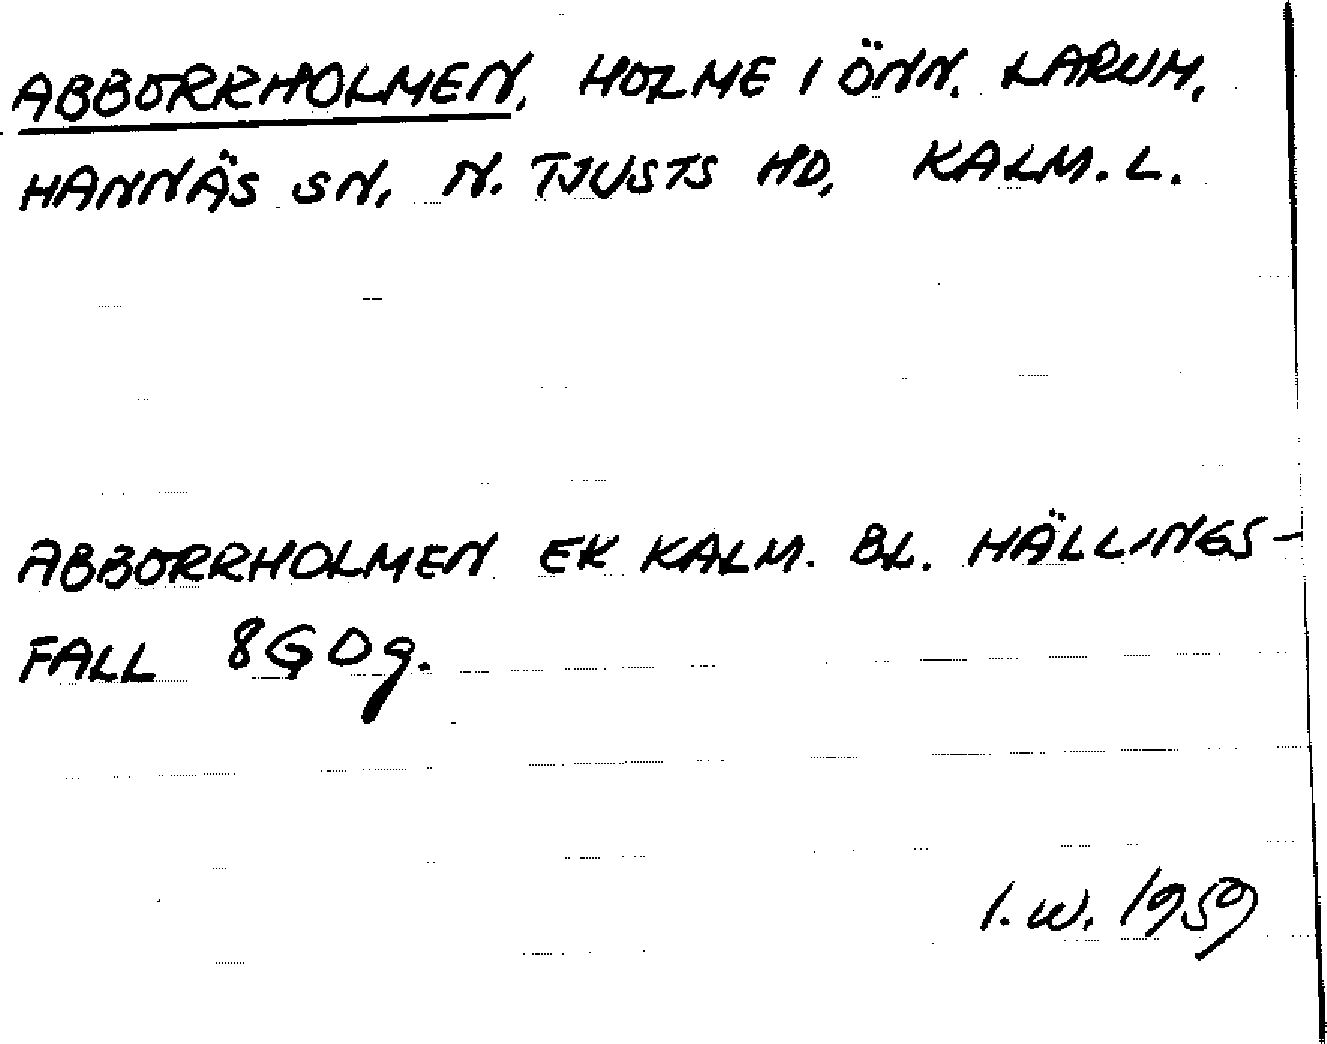 ABBORRHOLMEN, HOLME I ÖNN. LARUM,
HANNÄS SN, N. TJUSTS HD, KALM. L.
ABBORRHOLMEN EK KALM. BL. HÄLLINGS-
FALL 8G0g.
I.W. 1959